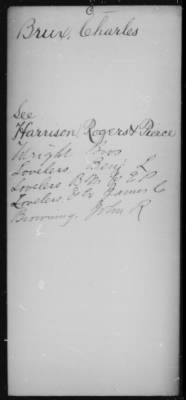 Brux, Charles
See
Harrison, Rogers & Pierce
Wright Bros
Lovelers, Benj. L
Lovelers B. B. & E P
Lovelers, & Co James C
Browning, John R